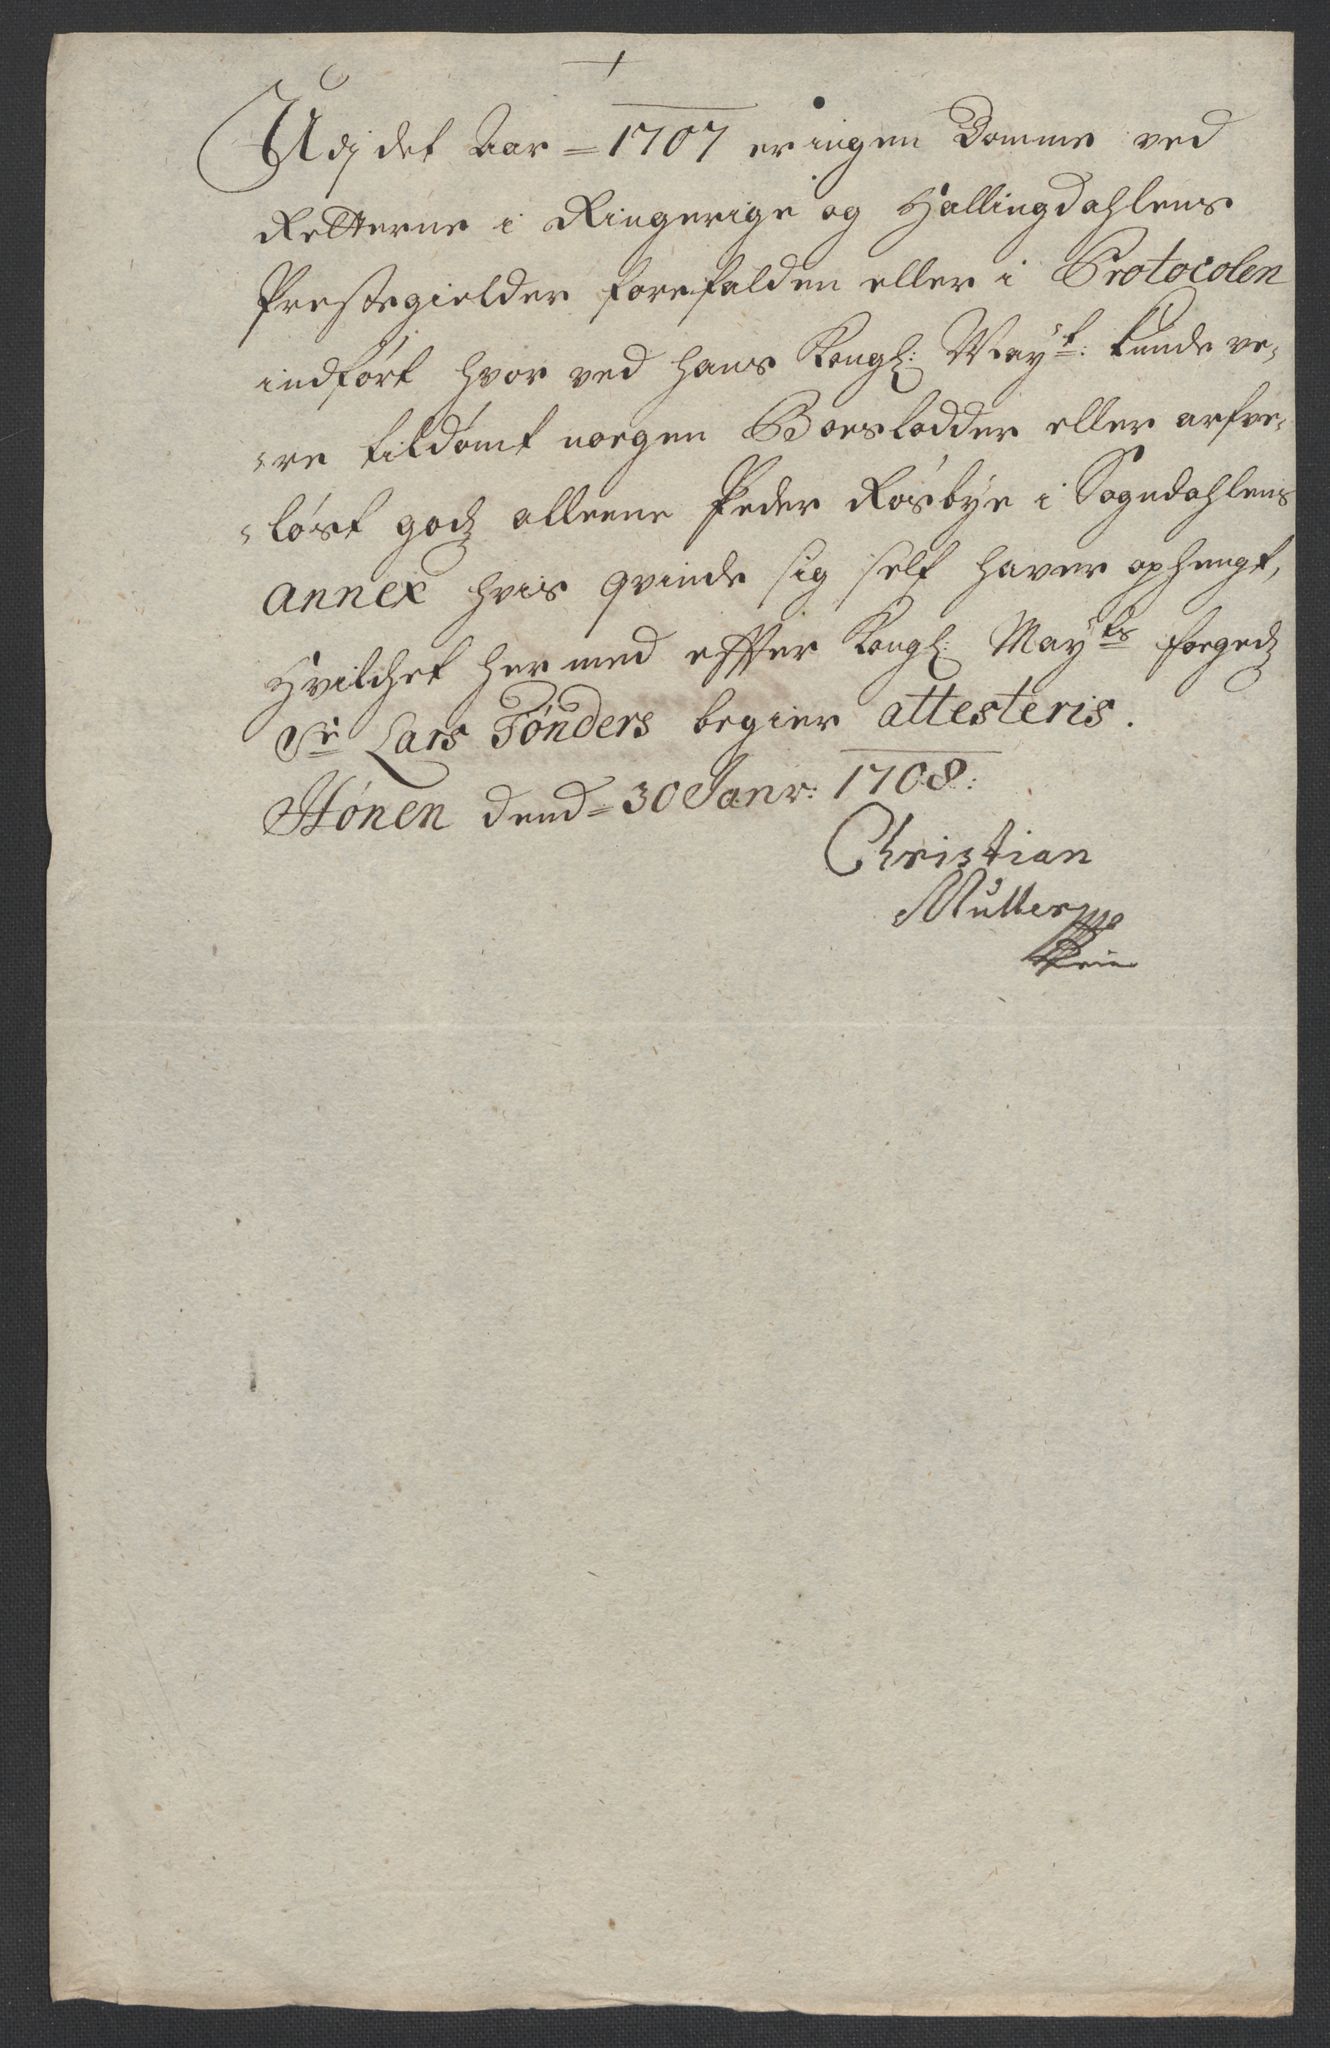 Udj det Aar = 1707 er ingen Domme ved
Retterne i Ringerige og Hallingdahlens
Prestegielder forefalden eller i Protocolen
indført hvor ved hans Kongl: Mayst: kunde ve-
-re tildømt noegen Boeslodder eller arfve-
-løst godz alleene Peder Røsbye i Sogndahlens
annex hvis qvinde sig self haver ophengt,
Hvilchet hermed effter Kongl: Maysts foegedz
Sr Lars Tønders begier attesteris.
Hønen dend = 30 Janr: 1708:
Christian
Muller